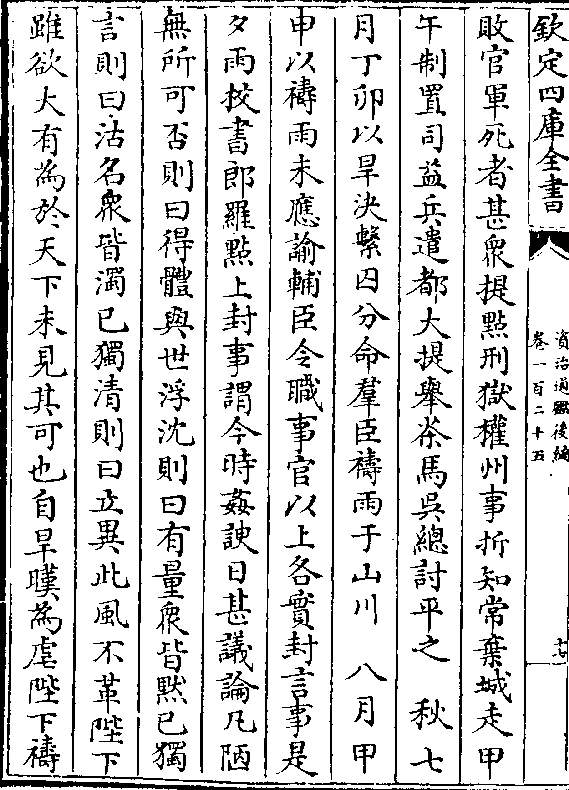 欽定四庫全書
資治通鑑後編
卷一百二十五
敗官軍死者甚衆提點刑獄權州事折知常棄城走甲
午制置司益兵遣都大提舉茶馬吳總討平之　秋七
月丁卯以旱決繫囚分命羣臣禱雨于山川　八月甲
申以禱雨未應諭輔臣令職事官以上各實封言事是
夕雨校書郎羅點上封事謂今時姦諛日甚議論凡陋
無所可否則曰得體與世浮沈則曰有量衆皆默已獨
言則曰沽名衆皆濁已獨清則曰立異此風不革陛下
雖欲大有為於天下未見其可也自旱暵為虐陛下禱